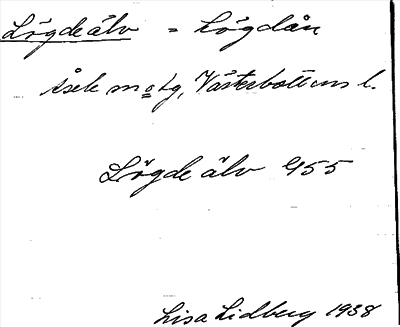 Lögdeälv = Lögdån
Åsele m o lg, Västerbottens l.
Lögde älv G55
Lisa Lidberg 1938